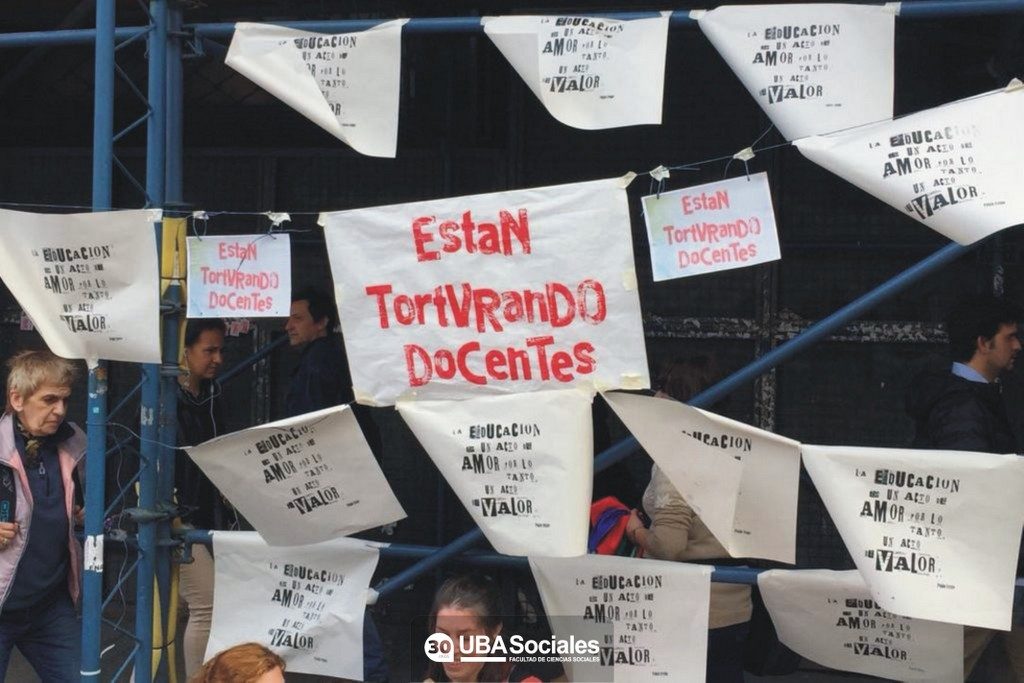 LA EDUCACION
ES UN ACTO DE
AMOR POR LO
TANTO,
UN ACTO
DE VALOR.
LA EDUCACION
ES UN ACTO DE
AMOR POR LO
TANTO,
UN ACTO
DE VALOR.
LA EDUCACION
ES UN ACTO DE
AMOR POR LO
TANTO,
UN ACTO
DE VALOR.
LA EDUCACION
ES UN ACTO DE
AMOR POR LO
TANTO,
UN ACTO
DE VALOR.
LA EDUCACION
ES UN ACTO DE
AMOR POR LO
TANTO,
UN ACTO
DE VALOR.
EstaN
TortVRanDO
DoCenTes
EstaN
TortVRanDO
DoCenTes
EstaN
TortVRanDO
DoCenTes
LA EDUCACION
ES UN ACTO DE
AMOR POR LO
TANTO,
UN ACTO
DE VALOR.
LA EDUCACION
ES UN ACTO DE
AMOR POR LO
TANTO,
UN ACTO
DE VALOR.
UCACION
LA EDUCACION
ES UN ACTO DE
AMOR POR LO
TANTO,
UN ACTO
DE VALOR.
LA EDUCACION
ES UN ACTO DE
AMOR POR LO
TANTO,
UN ACTO
DE VALOR.
LA EDUCACION
ES UN ACTO DE
AMOR POR LO
TANTO,
UN ACTO
DE VALOR.
UN ACTO DE
AMOR POR LO
TANTO,
UN ACTO
DE VALOR.
30 UBA Sociales
FACULTAD DE CIENCIAS SOCIALES